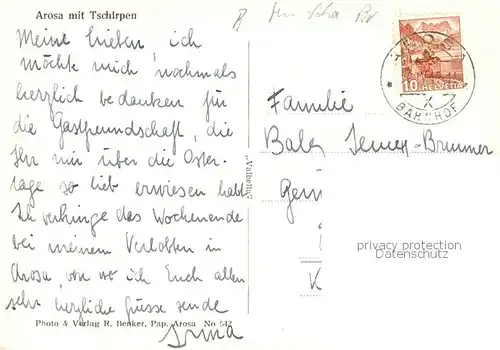 Arosa mit Tschirpen
Meine Lieben, ich
möchte mich nochmals
herzlich bedanken für
die Gastfreundschaft, die
Ihr mir über die Oster-
tage so lieb erwiesen habt.
Ich verbringe das Wochenende
bei meinem Verlobten in
Arosa, von wo ich Euch allen
sehr herzliche Grüsse sende
Irma
Photo & Verlag R. Benker, Pap. Arosa No 542
„Valbella"
10 HELVETIA
BAHNHOF
X
Familie
-Brunner
privacy protection
Datenschutz